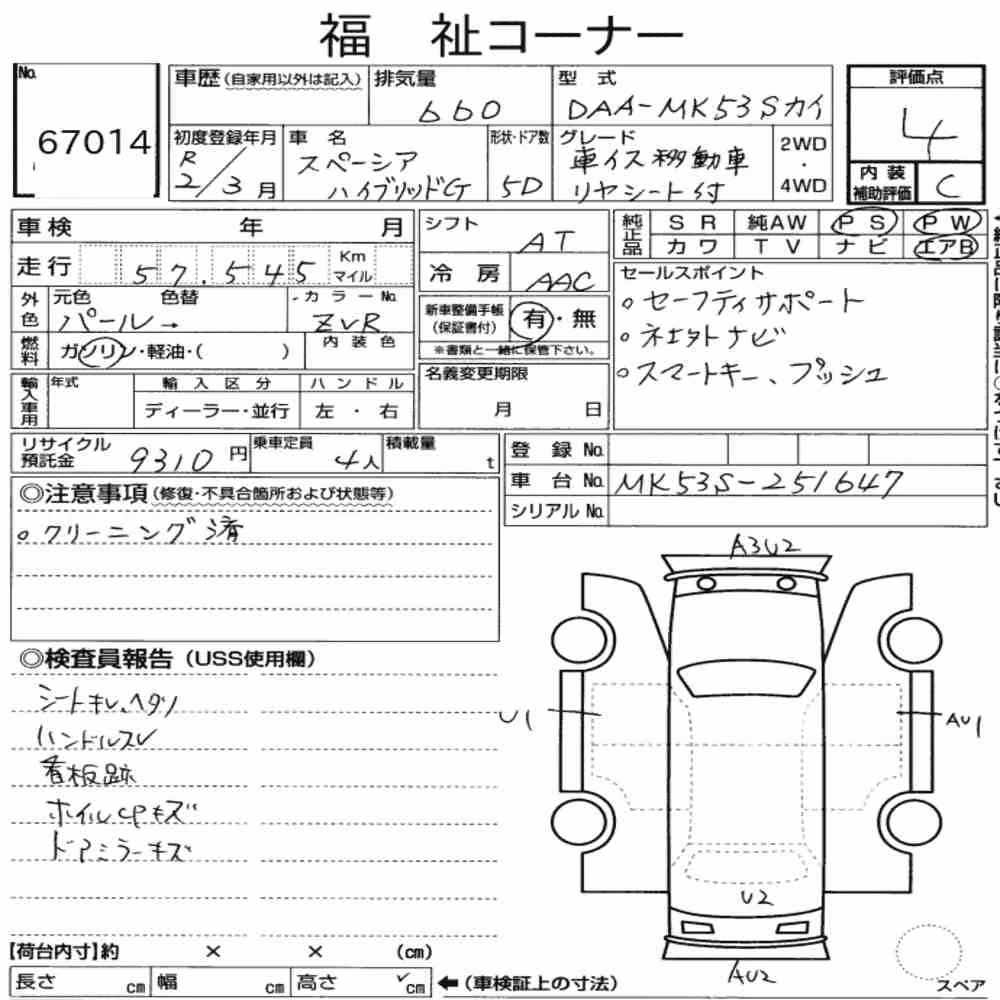 福 祉コーナー
No.
67014
車歴(自家用以外は記入)
排気量
660
型 式
DAA-MK53Sカイ
評価点
4
内装
補助評価
C
初度登録年月
R
2/3月
車 名
スペーシア
ハイブリッドG
形状・ドア数
5D
グレード
車イス移動車
リヤシート付
2WD
・
4WD
車検 年 月
走行 57.545 Km
マイル
外色
元色 色替
パール→
カラーNo.
ZVR
燃料
ガソリン・軽油・( )
内装色
輸入車用
年式
輸入区分
ディーラー・並行
ハンドル
左・右
シフト
AT
冷房
AAC
新車整備手帳
(保証書付)
有・無
※書類と一緒に保管下さい。
名義変更期限
月 日
純正品
SR 純AW PS PW
カワ TV ナビ エアB
セールスポイント
○セーフティサポート
○ネエタトナビ
○スマートキー、プッシュ
リサイクル
預託金
9310円
乗車定員
4人
積載量
t
登 録 No.
車 台 No. MK53S-251647
シリアル No.
◎注意事項(修復・不具合箇所および状態等)
○クリーニング済
◎検査員報告(USS使用欄)
シートキレ、ヘタリ
ハンドルスレ
看板跡
ホイルCPキズ
ドアミラーキズ
A3U2
U1
AU1
U2
AU2
スペア
【荷台内寸】約 × × (cm)
長さ cm 幅 cm 高さ cm
←(車検証上の寸法)